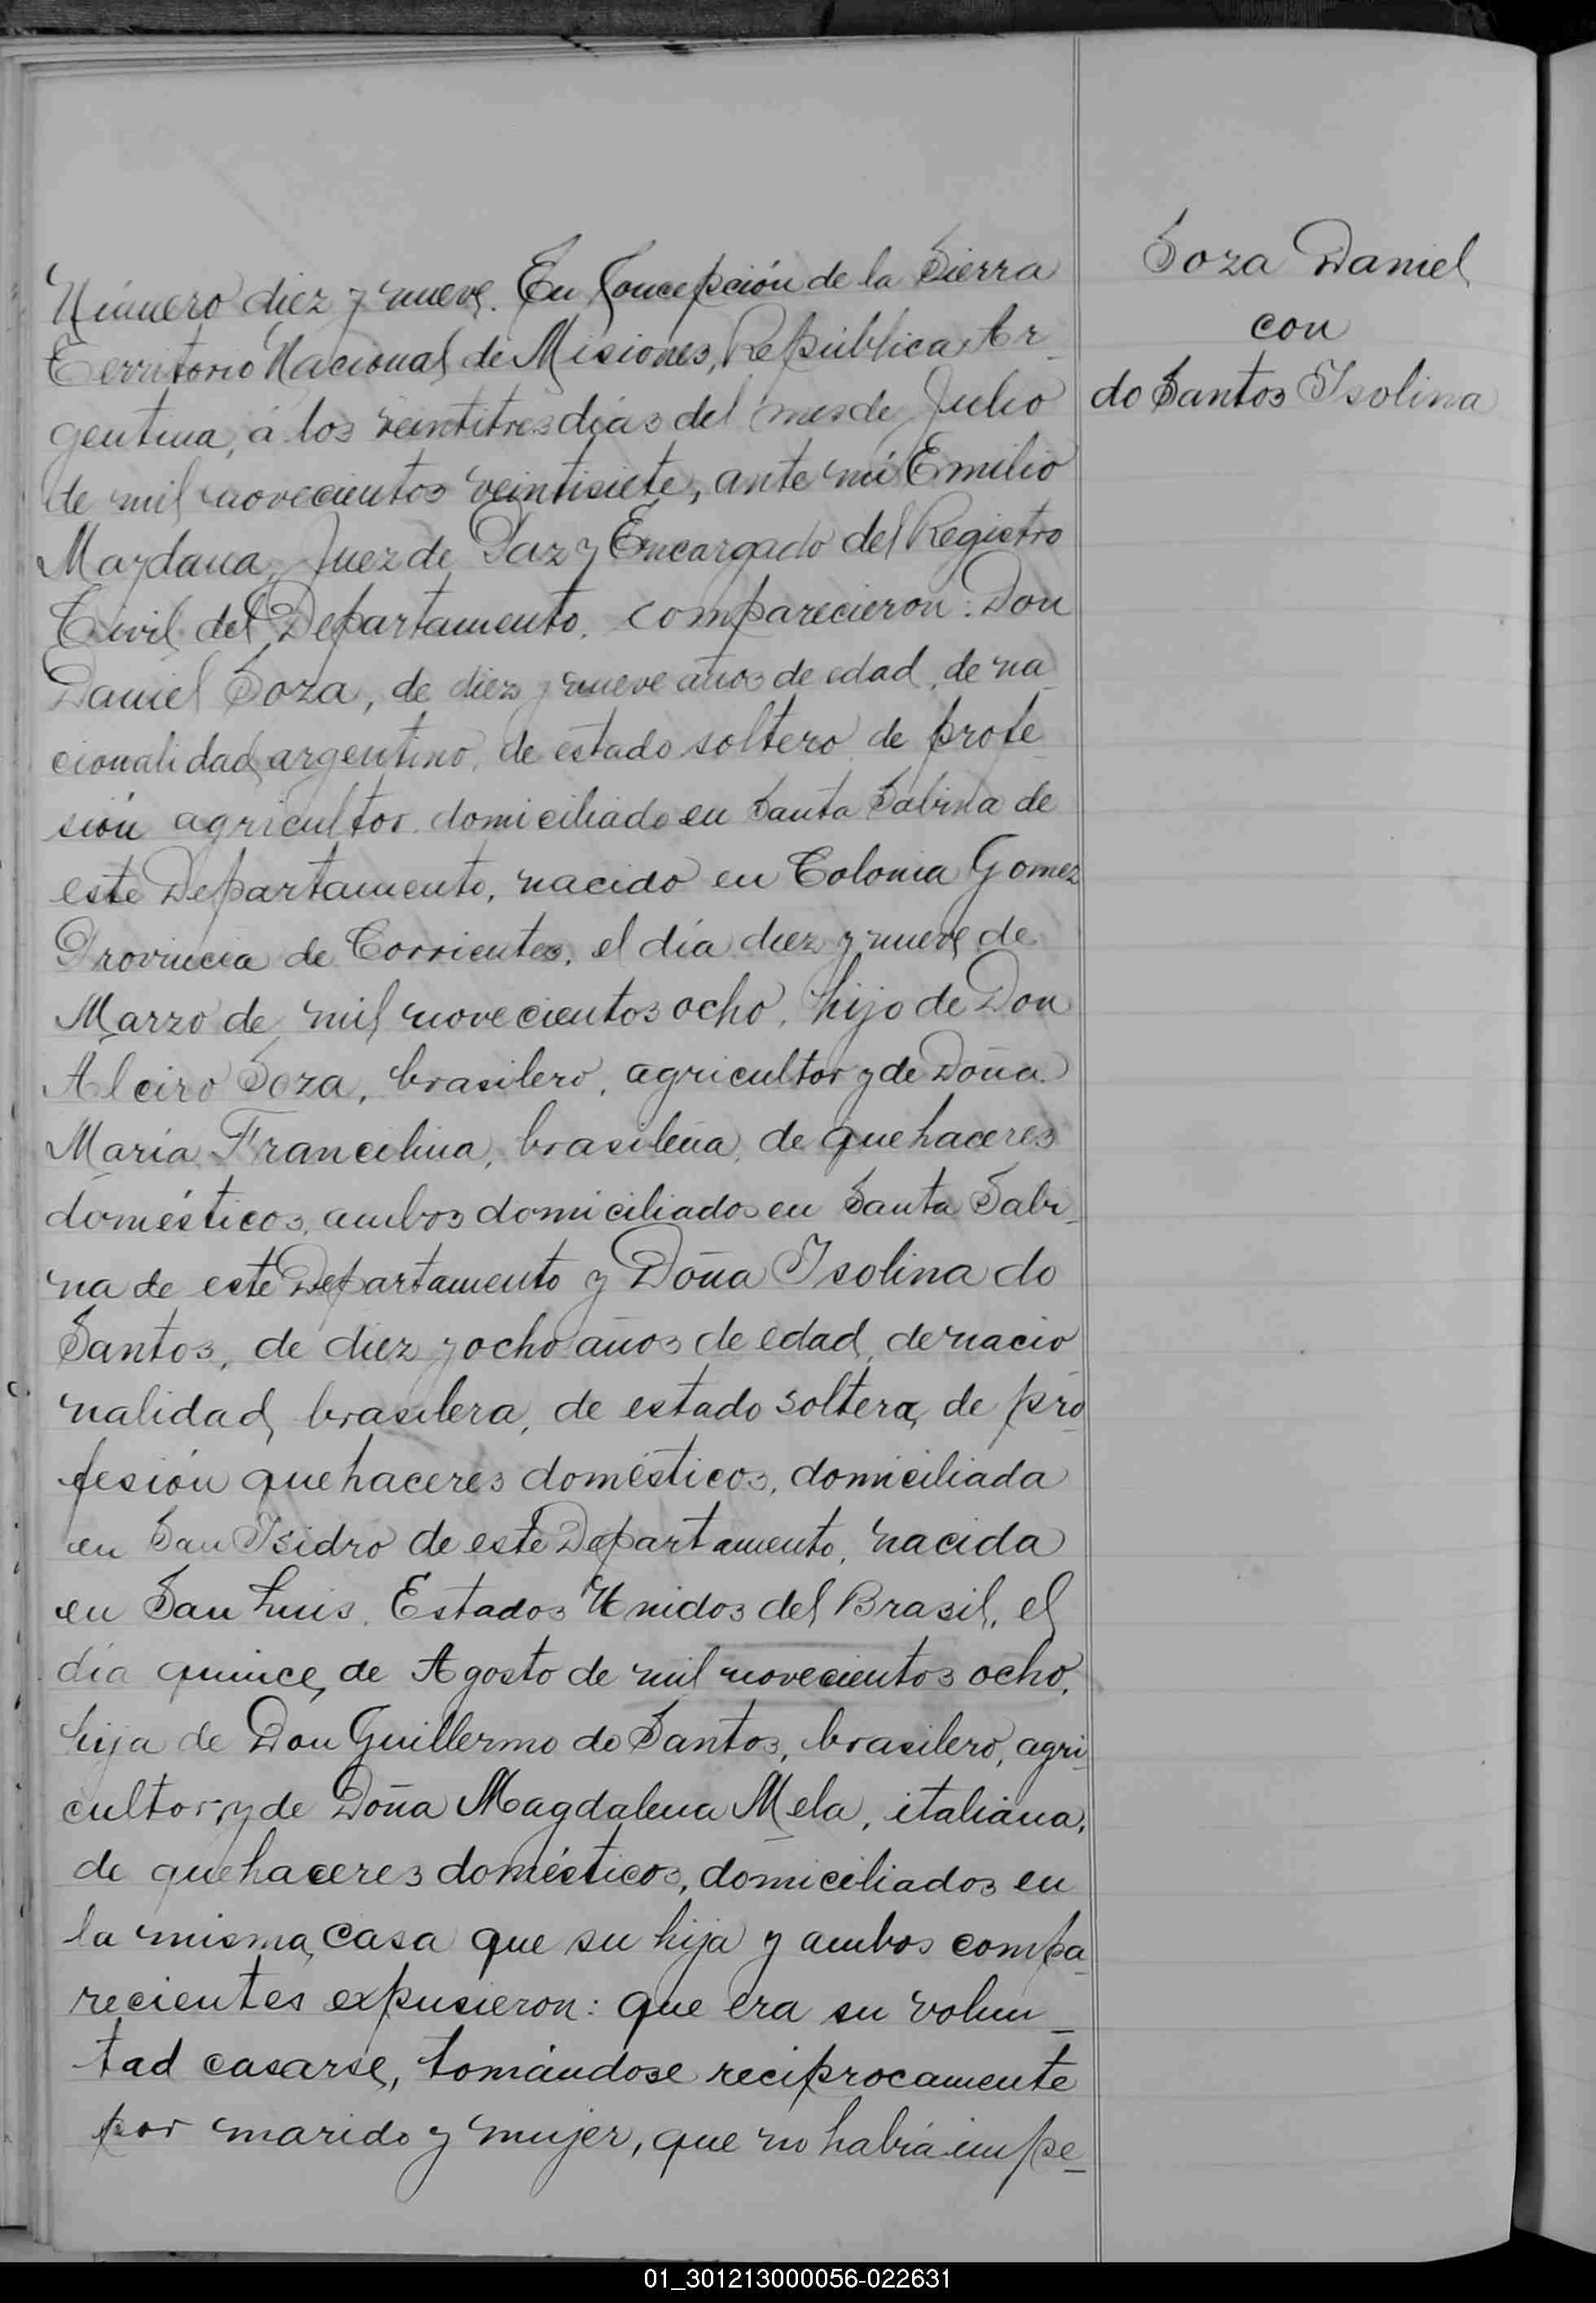 Soza Daniel
con
do Santos Isolina
Número diez y nueve. En Concepción de la Sierra
Territorio Nacional de Misiones, República Ar_
gentina, á los veintitres dias del mes de Julio
de mil novecientos veintisiete, ante mí Emilio
Maydana, Juez de Paz y Encargado del Registro
Civil del Departamento, comparecieron: Don
Daniel Soza, de diez y nueve años de edad, de na_
cionalidad argentino, de estado soltero, de profe_
sión agricultor, domiciliado en Santa Sabina de
este Departamento, nacido en Colonia Gomez
Provincia de Corrientes, el día diez y nueve de
Marzo de mil novecientos ocho, hijo de Don
Alciro Soza, brasilero, agricultor y de Doña
María Francilina, brasileña, de quehaceres
domésticos, ambos domiciliados en Santa Sabi_
na de este Departamento y Doña Isolina do
Santos, de diez y ocho años de edad, de nacio_
nalidad brasilera, de estado soltera, de pro_
fesión quehaceres domésticos, domiciliada
en San Isidro de este Departamento, nacida
en San Luis, Estados Unidos del Brasil, el
día quince de Agosto de mil novecientos ocho,
hija de Don Guillermo do Santos, brasilero, agri_
cultor, y de Doña Magdalena Mela, italiana,
de quehaceres domésticos, domiciliados en
la misma casa que su hija y ambos compa_
recientes expusieron: que era su volun_
tad casarse, tomándose reciprocamente
por marido y mujer, que no había impe_
01_301213000056-022631